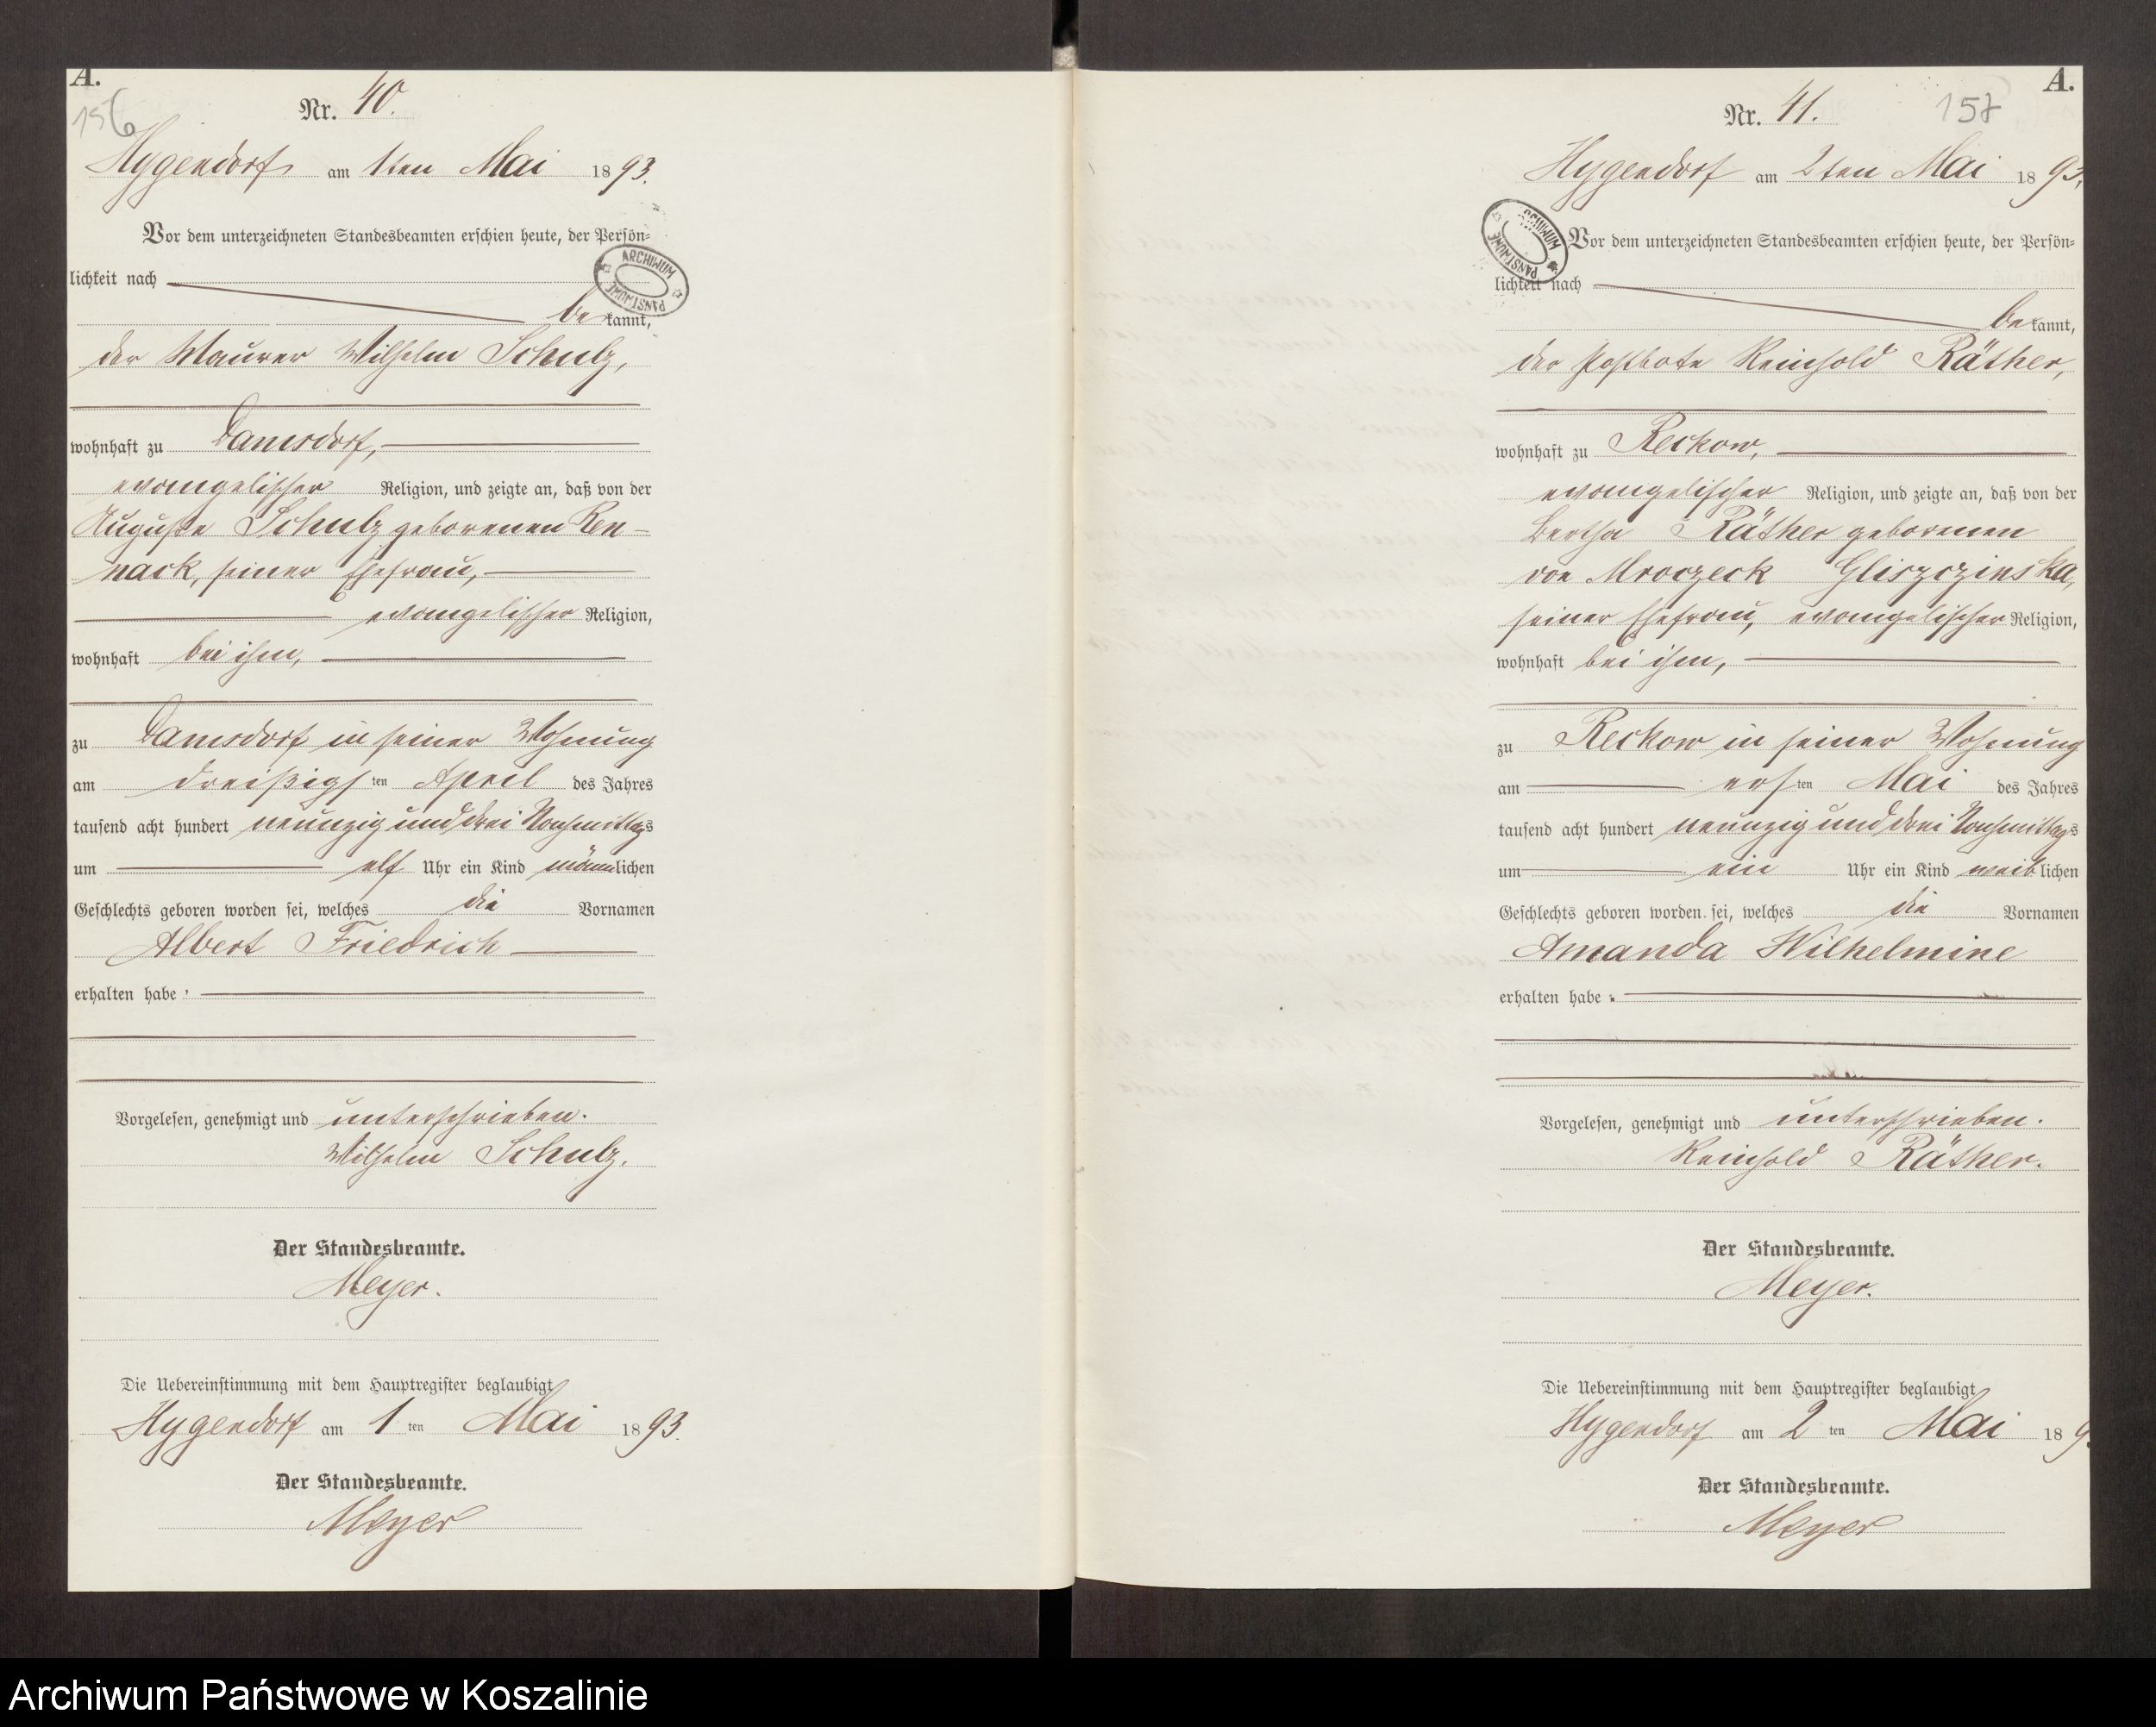 A.
156
Nr. 40.
Hygendorf am 1ten Mai 1893.
Vor dem unterzeichneten Standesbeamten erschien heute, der Persön=
lichkeit nach
bekannt,
der Maurer Wilhelm Schulz,
wohnhaft zu Damsdorf,
evangelischer Religion, und zeigte an, daß von der
Auguste Schulz geborenen Ren-
nack, seiner Ehefrau,
evangelischer Religion,
wohnhaft bei ihm,
zu Damsdorf in seiner Wohnung
am dreißigsten April des Jahres
tausend acht hundert neunzig und drei Nachmittags
um elf Uhr ein Kind männlichen
Geschlechts geboren worden sei, welches die Vornamen
Albert Friedrich
erhalten habe.
Vorgelesen, genehmigt und unterschrieben.
Wilhelm Schulz.
Der Standesbeamte.
Meyer.
Die Uebereinstimmung mit dem Hauptregister beglaubigt
Hygendorf am 1 ten Mai 1893.
Der Standesbeamte.
Meyer
ARCHIWUM PAŃSTWOWE
A.
157
Nr. 41.
Hygendorf am 2ten Mai 1893.
Vor dem unterzeichneten Standesbeamten erschien heute, der Persön=
lichkeit nach
bekannt,
der Postbote Reinhold Räther,
wohnhaft zu Reckow,
evangelischer Religion, und zeigte an, daß von der
Bertha Räther geborenen
von Mroczeck Gliszczinska,
seiner Ehefrau, evangelischer Religion,
wohnhaft bei ihm,
zu Reckow in seiner Wohnung
am ersten Mai des Jahres
tausend acht hundert neunzig und drei Nachmittags
um ein Uhr ein Kind weiblichen
Geschlechts geboren worden sei, welches die Vornamen
Amanda Wilhelmine
erhalten habe.
Vorgelesen, genehmigt und unterschrieben.
Reinhold Räther.
Der Standesbeamte.
Meyer.
Die Uebereinstimmung mit dem Hauptregister beglaubigt
Hygendorf am 2 ten Mai 189
Der Standesbeamte.
Meyer
ARCHIWUM PAŃSTWOWE
Archiwum Państwowe w Koszalinie